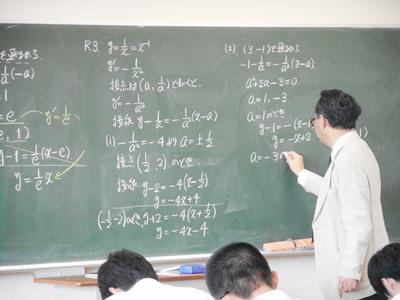 を通るから
(-a)
= 1
= e  y'=1/e
e, 1)
y-1=1/e(x-e)
y=1/e x
R3. y=1/x=x⁻¹
y'=-1/x²
接点は(a, 1/a)とおくと
y'=-1/a²
接線 y-1/a=-1/a²(x-a)
(1) -1/a²=-4より a=±1/2
接点(1/2, 2)のとき
接線 y-2=-4(x-1/2)
y=-4x+4
(-1/2,-2)のとき, y+2=-4(x+1/2)
y=-4x-4
(2) (3-1)を通るから
-1-1/a=-1/a²(3-a)
a²+2a-3=0
a=1, -3
a=1のとき
y-1=-(x-1)
y=-x+2
a=-3の